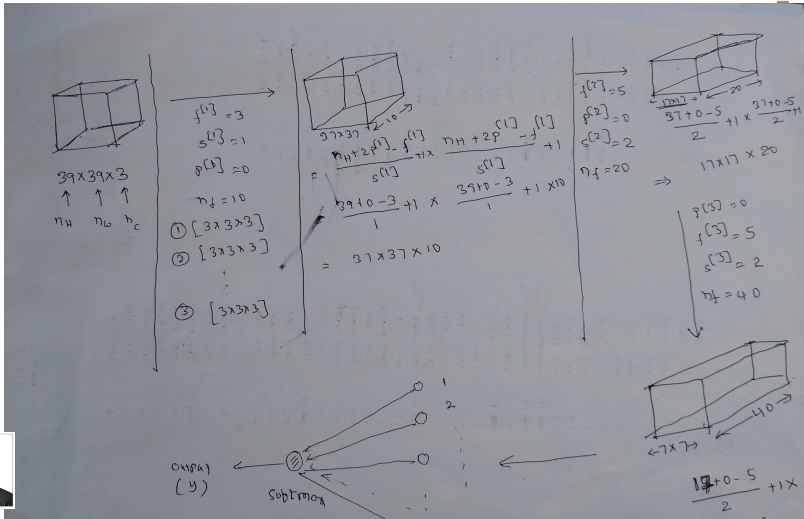 39×39×3
n_H n_W n_C
f^[1] = 3
s^[1] = 1
p^[1] = 0
n_f = 10
① [3×3×3]
② [3×3×3]
③ [3×3×3]
37×37
10
= n_H + 2p^[1] - f^[1] / s^[1] +1 × n_H + 2p^[1] - f^[1] / s^[1] +1
39+0-3 / 1 +1 × 39+0-3 / 1 +1 ×10
= 37×37×10
f^[2] = 5
p^[2] = 0
s^[2] = 2
n_f = 20
17×17
20
37+0-5 / 2 +1 × 37+0-5 / 2 +1
⇒ 17×17×20
p^[3] = 0
f^[3] = 5
s^[3] = 2
n_f = 40
7×7
40
17+0-5 / 2 +1×
1
2
softmax
output
(y)